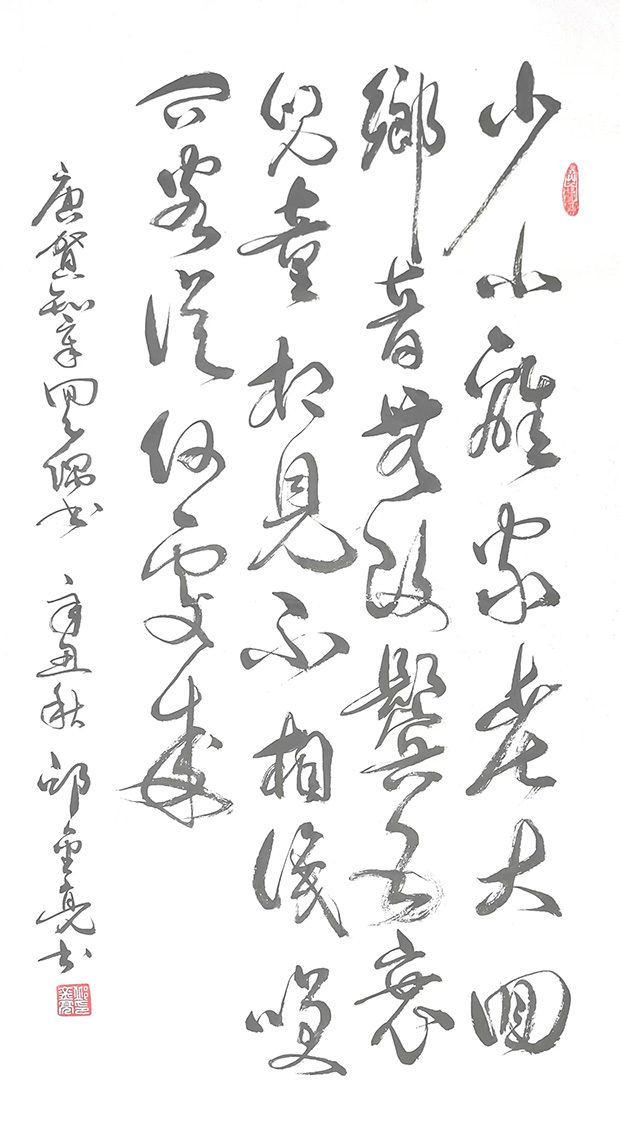 少小離家老大回
鄉音無改鬢毛衰
兒童相見不相識咲
问客從何處來
唐賀知章回乡偶書 辛丑秋 邱金亮書